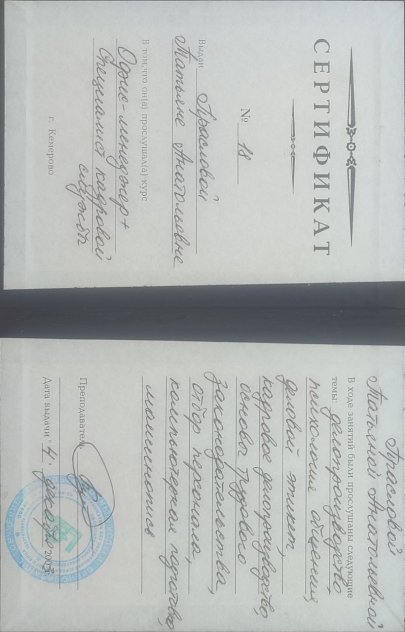 СЕРТИФИКАТ
№ 18
Выдан Прасловой
Татьяне Анатольевне
В том, что он(а) прослушал(а) курс
Офис-менеджер+
Специалист кадровой
службы
г. Кемерово
Прасловой
Татьяной Анатольевной
В ходе занятий были прослушаны следующие
темы: делопроизводство,
психология общения,
деловой этикет,
кадровое делопроизводство,
основы трудового
законодательства,
отбор персонала,
компьютерная подготовка,
машинопись
Преподаватель
Дата выдачи "4" декабря